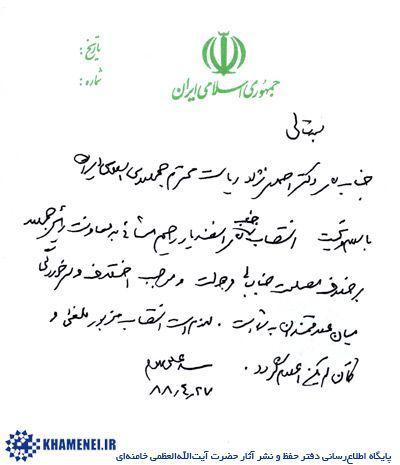 تاریخ :
شماره :
جمهوری اسلامی ایران
بسمه‌تعالی
جناب آقای دکتر احمدی نژاد ریاست محترم جمهوری اسلامی ایران
با سلام و تحیت انتصاب جناب آقای اسفندیار رحیم مشائی به معاونت رئیس جمهور
برخلاف مصلحت جنابعالی و دولت و موجب اختلاف و سرخوردگی
میان علاقمندان به شما است. لازم است انتصاب مزبور ملغی و
کان لم یکن اعلام گردد.
سید علی
۸۸،۴،۲۷
KHAMENEI.IR
پایگاه اطلاع‌رسانی دفتر حفظ و نشر آثار حضرت آیت‌الله‌العظمی خامنه‌ای